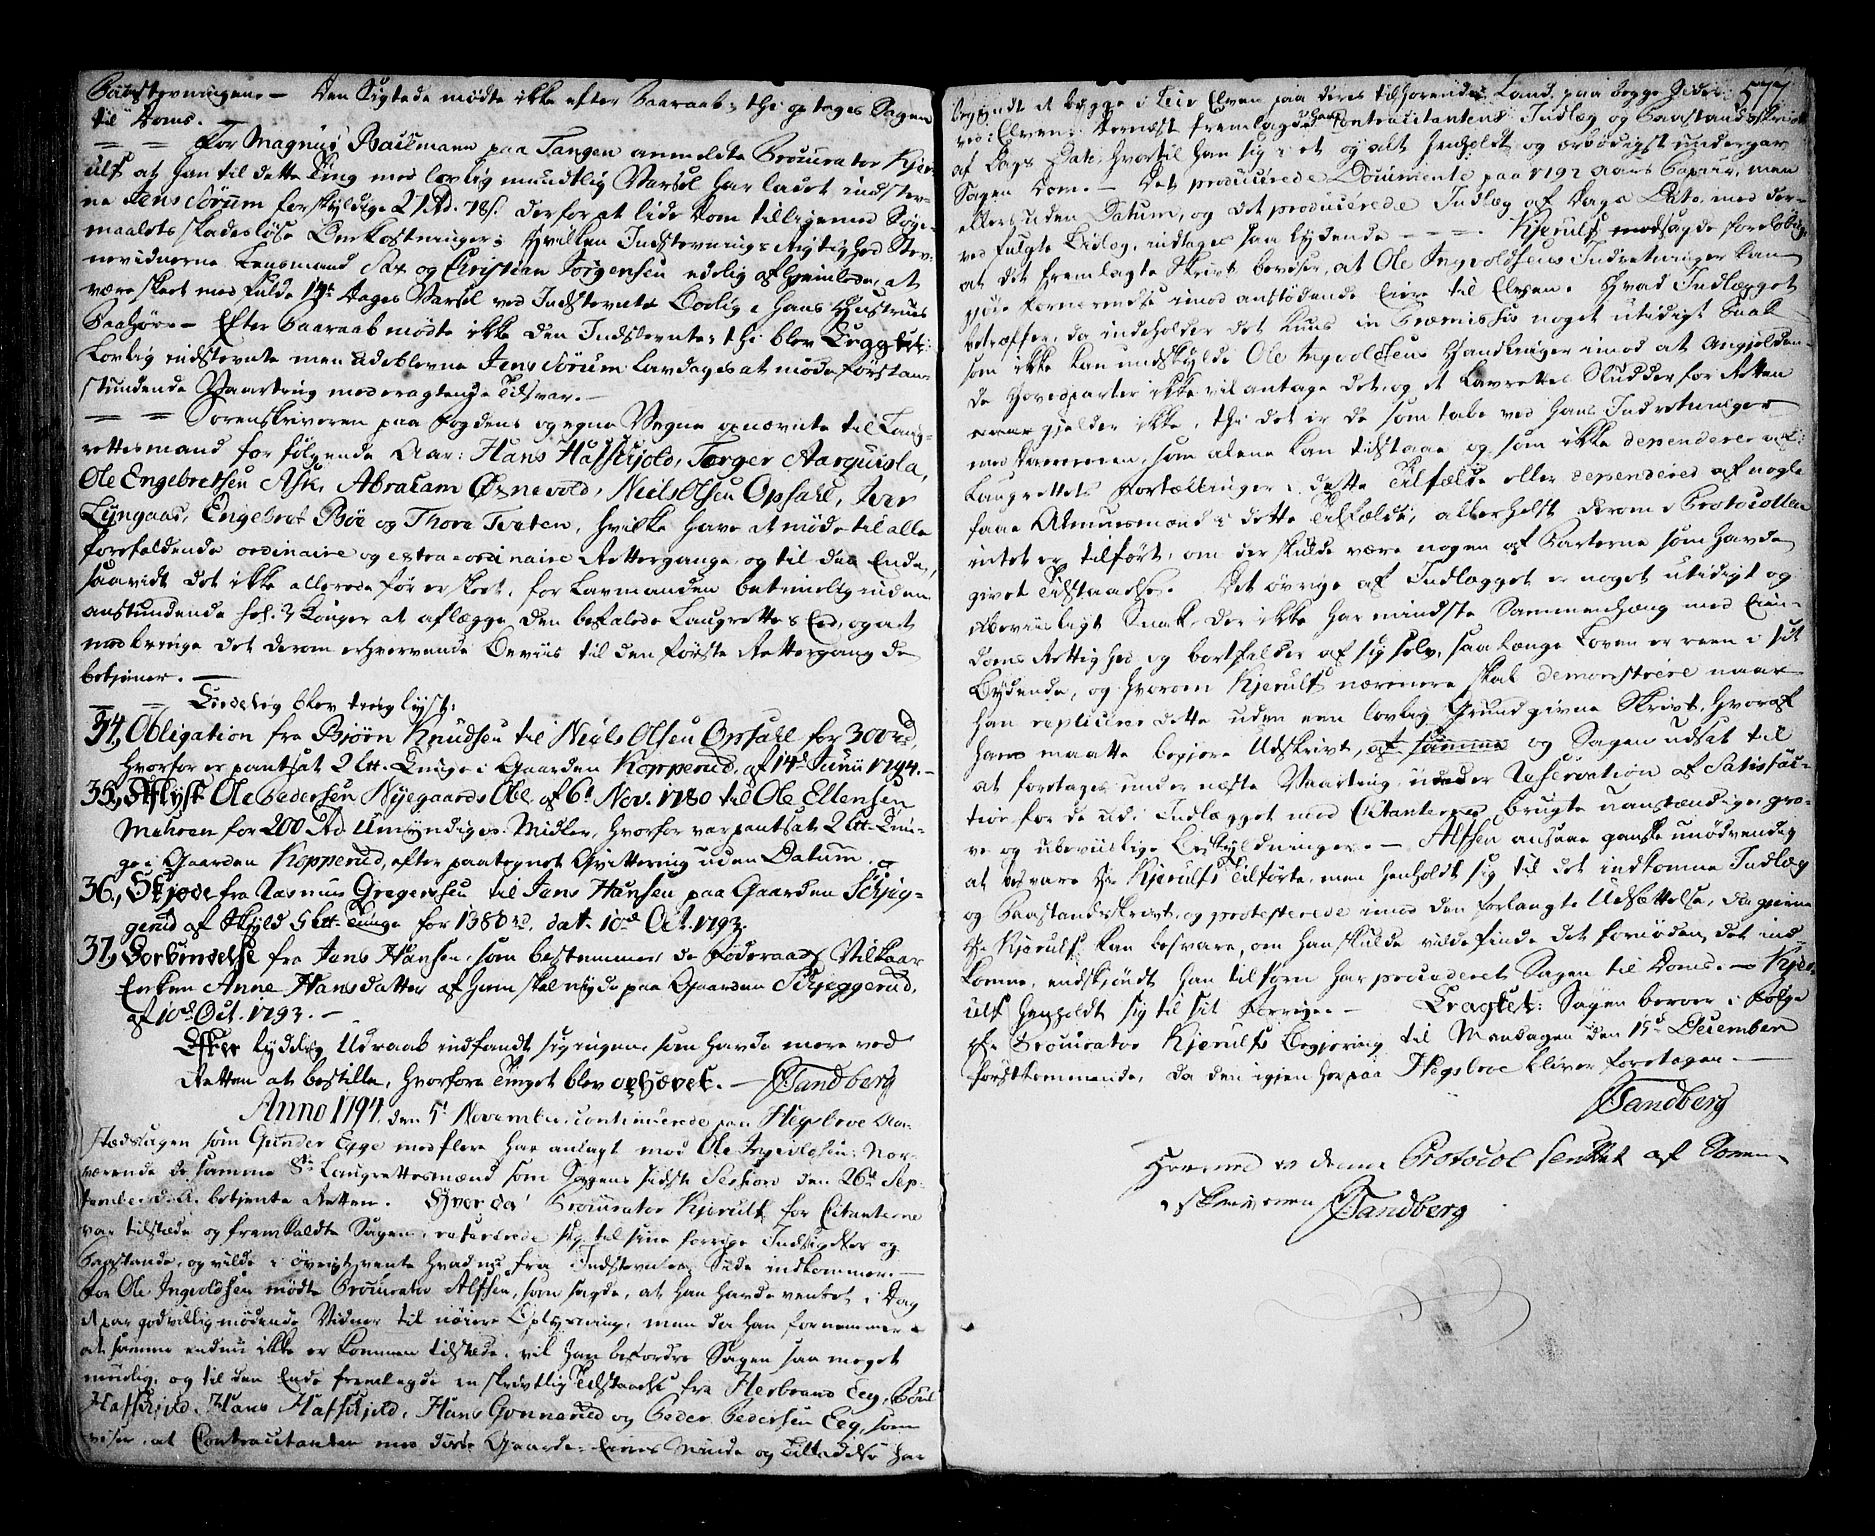 Paastevningen. — Den Sigtede mødte ikke efter Paaraab; thi optages Sagen
til Doms. —
— — For Magnus Bachmann paa Tangen anmeldte Procurator Kjer-
ulf at han til dette Ting med lovlig mundtlig Varsel har ladet indstev-
ne Jens Sörum for skyldige 2 Rd. 78 s. derfor at lide Dom tilligemed Søgs-
maalets skadesløse Omkostninger; Hvilken Indstevnings Rigtighed Stev-
nevidnerne Lensmand Sax og Christian Jörgensen edelig afhjemlede, at
være skeet med fulde 14 Dages Varsel ved Indstevntes Boelig i hans Hustrues
Paahör. — Efter Paaraab mødte ikke den Indstevnte; thi blev Eragtet:
Lovlig indstevnte men udeblevne Jens Sörum Lavdages at møde förstan-
stundende Vaarting med eragtende Tilsvar. —
— — Sorenskriveren paa Fogdens og egne Vegne opnævnte til Laug-
rettesmænd for følgende Aar: Hans Hafschjold, Torger Aarqvisla,
Ole Engebretsen Ask, Abraham Øsnevold, Niels Olsen Opsahl, Iver
Lyngaas, Engebret Böe og Thore Tveten, hvilke have at møde til alle
forefaldende ordinaire og extra-ordinaire Rettergange, og til den Ende,
saavidt det ikke allerede før er skeet, for Lavmanden betimelig inden
anstundende hel. 3 Konger at aflægge den befalede Laugrettes Eed, og at
medbringe det derom erhvervende Beviis til den første Rettergang de
betjener. —
— — Endelig blev tinglyst:
34, Obligation fra Bjørn Knudsen til Niels Olsen Opsahl for 300 rd,
hvorfor er pantsat 2 Ltt. Tunge i Gaarden Kopperud, af 14d Junii 1794. —
35, Aflyst Ole Pedersen Nyegaards Obl. af 6t Nov. 1780 til Ole Ellensen
Mehren for 200 Rd Umyndiges Midler, hvorfor var pantsat 2 Ltt. Tun-
ge i Gaarden Kopperud, efter paategnet Qvittering uden Datum.
36, Skjøde fra Rasmus Gregersen til Jens Hansen paa Gaarden Schjeg-
gerud af Skyld 5 Ltt. Tunge for 1380 rd, dat. 10d Oct. 1793.
37, Forbindelse fra Jens Hansen, som bestemmer de Föderaads Vilkaar
Enken Anne Hansdatter af ham skal nyde paa Gaarden Schjeggerud,
af 10d Oct. 1793. —
Efter lydelig Udraab indfandt sig ingen, som havde mere ved
Retten at bestille, hvorfore Tinget blev ophævet. — Sandberg
Anno 1794, den 5t November, continuerede paa Hegsbroe Aa-
stædssagen som Gunder Egge med flere har anlagt mod Ole Ingvoldsen; Nær-
værende de samme 8te Laugrettesmænd som Sagens sidste Session den 26d Sep-
tember d. A. betjente Retten. Hvor da Procurator Kjerulf for Citanterne
var tilstede og fremkaldte Sagen, refererede sig til sine forrige Indsigelser og
Paastande, og vilde i øvrigt vente hvad nu fra Indstevntes Side indkommer. —
For Ole Ingvoldsen mødte Procurator Alssen, som sagde, at han havde ventet i Dag
et par godvillig mødende Vidner til nöiere Oplysning, men da han fornemmer
at samme endnu ikke er kommen tilstede, vil han befordre Sagen saa meget
muelig, og til den Ende fremlagde en skrivtlig Tilstaaelse fra Herbrand Eeg, Poul
Hafschjold, Hans Hafschjold, Hans Gonnerud og Peder Pedersen Eeg, som
viser, at Contracitanten med disse Gaarde-Eieres Minde og Tilladelse har
577
begyndt at bygge i Leie Elven paa deres tilhørende Land, paa begge Sider
ved Elven; dernæst fremlagde han Contracitantens Indlæg og Paastandsskrivt
af Dags Dato, hvortil han sig i et og alt henholdt og ærbødigst undergav
Sagen Dom. — Det producerede Documente paa 1792 Aars Papiir, men
ellers uden Datum, og det producerede Indlæg af Dags Dato, med der-
ved fulgte Bielag, indtages saa lydende — — —. Kjerulf modsagde foreløbig
at det fremlagte Skrivt beviser, at Ole Ingvoldsens Indretninger kan
gjöre Fornærmelse imod anstødende Eiere til Elven. Hvad Indlægget
betræffer, da indeholder det kuns in Præmissis noget utidigt Snak
som ikke kan undskylde Ole Ingvoldsens Handlinger imod at angjelden-
de Hovedparter ikke vil antage det, og at Lavrettes Sludder for Retten
gjelder ikke, thi det er de som tabe ved hans Indretninger
med Dammen, som alene kan tilstaae og som ikke dependerer af
Laugrettets Fortællinger i dette Tilfælde eller dependered af nogle
faae Almuesmænd i dette Tilfælde, allerhelst derom i Protocollen
intet er tilført, om der skulde være nogen af Parterne som havde
givet Tilstaaelse. Det övrige af Indlægget er noget utidigt og
ubeviisligt Snak, der ikke har mindste Sammenhæng med Eien-
doms Rettighed og bortfalder af sig selv, saa længe Loven er reen i sit
Bydende, og hvorom Kjerulf nærmere skal demonstrere naar
han replicere dette uden een lovlig Grundgivne Skrivt, hvoraf
han maatte begjere Udskrivt, og Sagen udsat til
at foretages under næste Vaarting under Reservation af Satisfac-
tion for de udi Indlægget mod Citanterne brugte uanstændige, gro-
ve og ubeviislige Beskyldninger. — Alssen ansaae ganske unødvendig
at besvare Hr Kjerulfs Tilførte, men henholdt sig til det indkomne Indlæg
og Paastandsskrivt, og protesterede imod den forlangte Udsættelse, da gierne
Hr Kjerulf kan besvare, om han skulde vilde finde det fornøden, det ind-
komne, endskjøndt han tilforn har procederet Sagen til Doms. — Kjer-
ulf henholdt sig til sit Forrige. — Eragtet: Sagen beroer i Følge
Hr Procurator Kjerulfs Begjering til Mandagen den 15d December
førstkommende, da den igjen her paa Hegsbroe bliver foretagen. —
Sandberg
Hermed er denne Protocol sluttet af Soren-
skriveren Sandberg